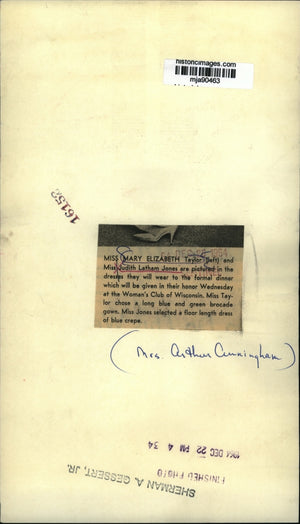 historicimages.com
mja90463
16152
MISS MARY ELIZABETH Taylor (left) and
Miss Judith Latham Jones are pictured in the
dresses they will wear to the formal dinner
which will be given in their honor Wednesday
at the Woman's Club of Wisconsin. Miss Tay-
lor chose a long blue and green brocade
gown. Miss Jones selected a floor length dress
of blue crepe.
(Mrs. Arthur Cunningham)
1964 DEC 22 PM 4 34
FINISHED PHOTO
SHERMAN A. GESSERT, JR.